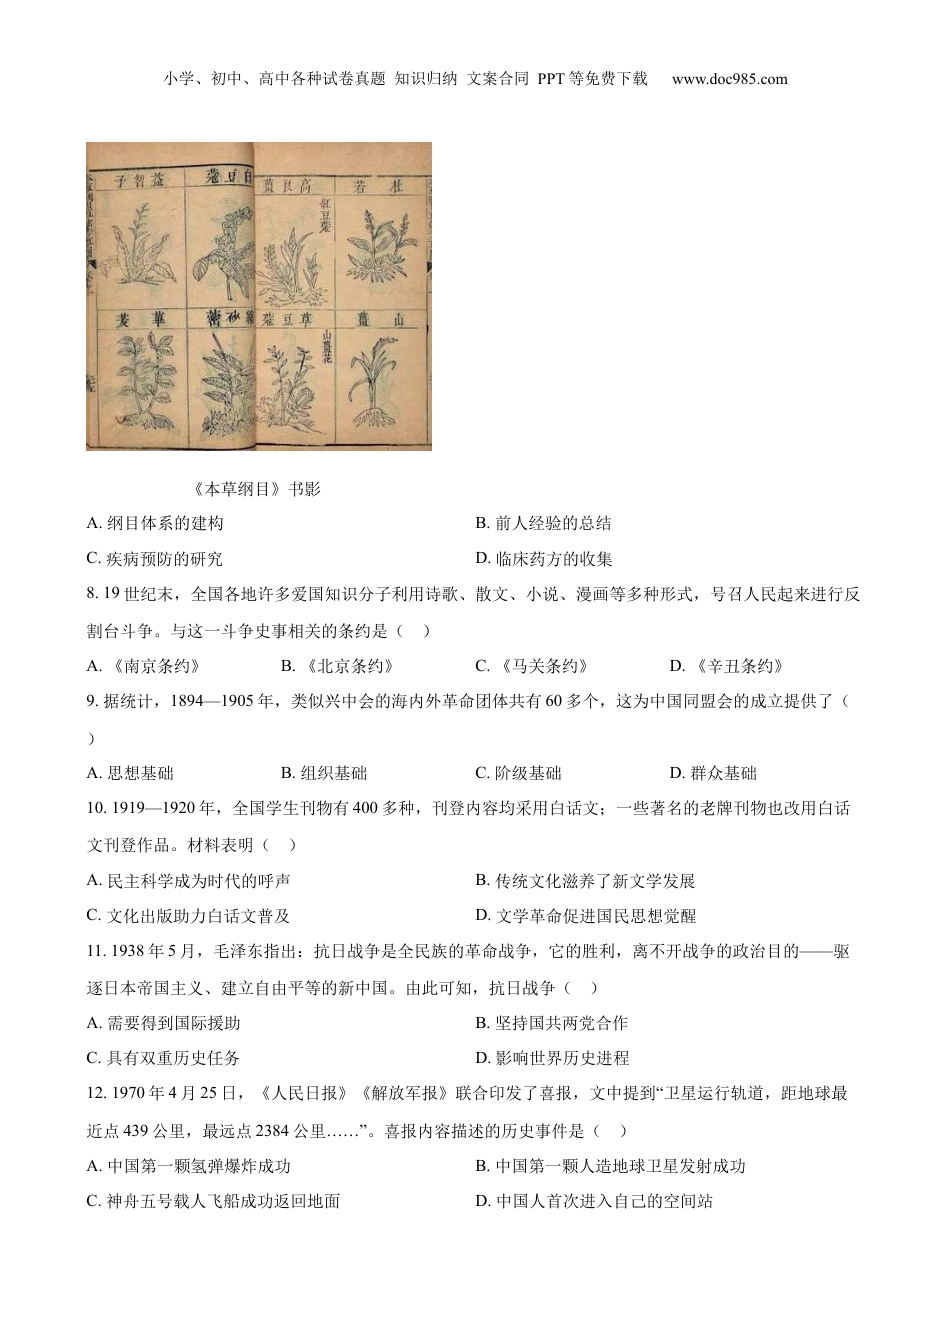 小学、初中、高中各种试卷真题 知识归纳 文案合同 PPT等免费下载 www.doc985.com
子智益
蔻豆白
薑良高
若杜
紅豆蔻
茇蓽
蔤砂縮
蔻豆草
薑山
山薑花
《本草纲目》书影
A. 纲目体系的建构 B. 前人经验的总结
C. 疾病预防的研究 D. 临床药方的收集
8. 19世纪末，全国各地许多爱国知识分子利用诗歌、散文、小说、漫画等多种形式，号召人民起来进行反
割台斗争。与这一斗争史事相关的条约是（ ）
A. 《南京条约》 B. 《北京条约》 C. 《马关条约》 D. 《辛丑条约》
9. 据统计，1894—1905年，类似兴中会的海内外革命团体共有60多个，这为中国同盟会的成立提供了（
）
A. 思想基础 B. 组织基础 C. 阶级基础 D. 群众基础
10. 1919—1920年，全国学生刊物有400多种，刊登内容均采用白话文；一些著名的老牌刊物也改用白话
文刊登作品。材料表明（ ）
A. 民主科学成为时代的呼声 B. 传统文化滋养了新文学发展
C. 文化出版助力白话文普及 D. 文学革命促进国民思想觉醒
11. 1938年5月，毛泽东指出：抗日战争是全民族的革命战争，它的胜利，离不开战争的政治目的——驱
逐日本帝国主义、建立自由平等的新中国。由此可知，抗日战争（ ）
A. 需要得到国际援助 B. 坚持国共两党合作
C. 具有双重历史任务 D. 影响世界历史进程
12. 1970年4月25日，《人民日报》《解放军报》联合印发了喜报，文中提到“卫星运行轨道，距地球最
近点439公里，最远点2384公里……”。喜报内容描述的历史事件是（ ）
A. 中国第一颗氢弹爆炸成功 B. 中国第一颗人造地球卫星发射成功
C. 神舟五号载人飞船成功返回地面 D. 中国人首次进入自己的空间站